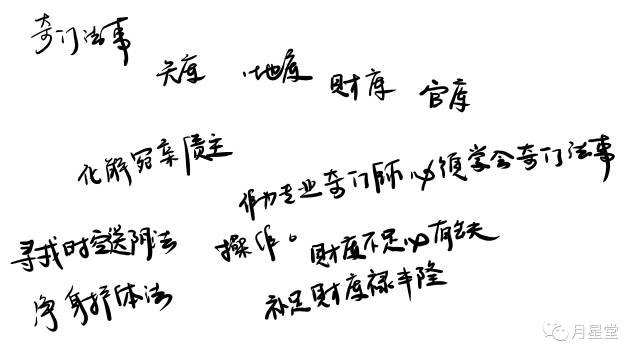 奇门法事
天库 地库 财库 官库
化解冤亲债主
作为专业奇门师必须学会奇门法事
操作。
寻找时空送阴法
财库不足必有缺
净身护体法
补足财库禄丰隆
月星堂